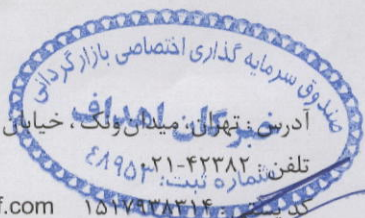 صندوق سرمایه گذاری اختصاصی بازارگردانی
خبرگان اهداف
شماره ثبت: ۴۸۹۵۳
آدرس: تهران، میدان ونک، خیابان
تلفن: ۴۲۳۸۲-۰۲۱
کد پستی: ۱۵۱۷۹۳۸۳۱۴
f.com